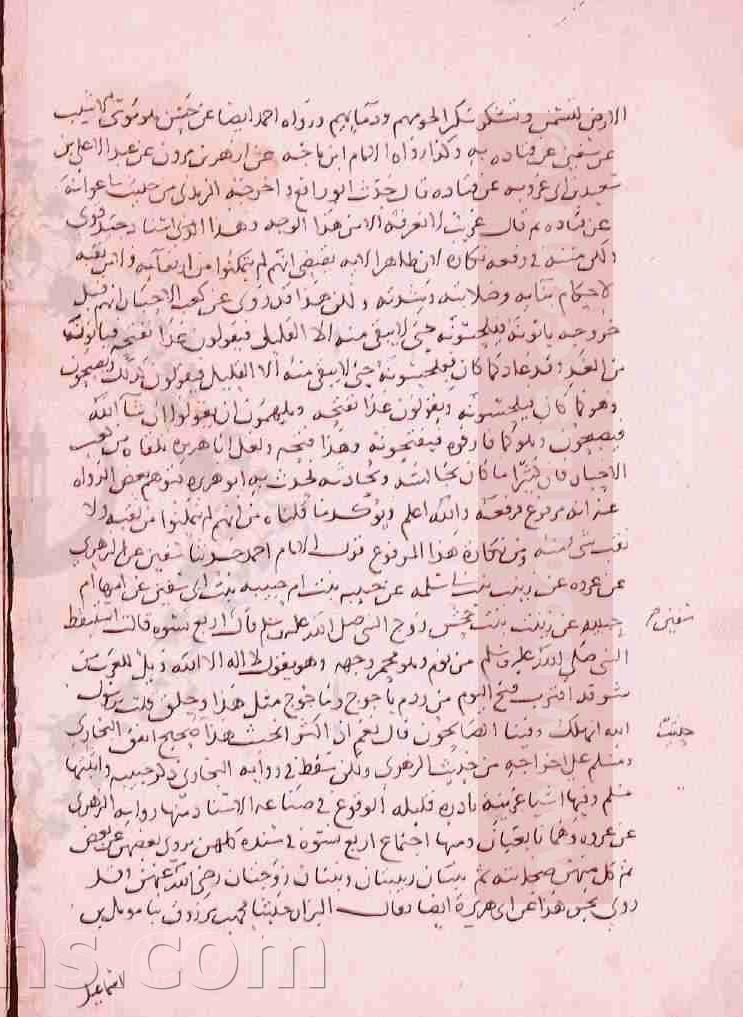 الارض لتسمن وتشكر شكرا من لحومهم ودمايهم ورواه احمد ايضا عن حسن بن موسى الاشيب
عن شيبان عن قتاده به وكذا رواه الامام ابن ماجه عن ازهر بن مروان عن عبد الاعلى بن
سعيد بن ابي عروبه عن قتاده قال حدث ابو رافع واخرجه الترمذي من حديث ابي عوانة
عن قتاده ثم قال غريب لا نعرفه الا من هذا الوجه وهذا الذي اسناد جيد قوي
ولكن متنه في رفعه نكارة لان ظاهر الايه يقتضي انهم لم يتمكنوا من ارتقايه ولا من نقبه
لاحكام بنايه وصلابته وشدته ولكن هذا قد روى عن كعب الاحبار انهم قبل
خروجه ياتونه فيلحسونه حتى لا يبقى منه الا القليل فيقولون غدا نفتحه فياتون
من الغد وقد عاد كما كان فيلحسونه حتى لا يبقى منه الا القليل فيقولون كذلك ويصبحون
وهو كما كان فيلحسونه ويقولون غدا نفتحه ويلهمون ان يقولوا ان شا الله
فيصبحون وهو كما فارقوه فيفتحونه وهذا متجه ولعل ابا هريره تلقاه من كعب
الاحبار فان كثيرا ما كان يجالسه ويحادثه فحدث به ابو هريره فتوهم بعض الرواه
عنه انه مرفوع فرفعه والله اعلم ويؤكد ما قلناه من انهم لم يتمكنوا من نقبه ولا
نقب شي منه ومن نكارة هذا المرفوع قول الامام احمد حدثنا سفين عن الزهري
عن عروه عن زينب بنت ابي سلمه عن حبيبه بنت ام حبيبه بنت ابي سفين عن امها ام
حبيبه عن زينب بنت جحش زوج النبي صلى الله عليه وسلم قال اربع نسوه قالت استيقظ
سفين
النبي صلى الله عليه وسلم من نوم وهو محمر وجهه وهو يقول لا اله الا الله ويل للعرب من
شر قد اقترب فتح اليوم من ردم ياجوج وماجوج مثل هذا وحلق قلت يا رسول
الله انهلك وفينا الصالحون قال نعم اذا كثر الخبث هذا صحيح اتفق البخاري
ومسلم على اخراجه من حديث الزهري ولكن سقط في رواية البخاري ذكر حبيبه واثبتها
مسلم وفيها اشيا عزيزه نادره قليله الوقوع في صناعة الاسناد منها رواية الزهري
عن عروه وهما تابعيان ومنها اجتماع اربع نسوه في سنده كلهن يروي بعضهن عن بعض
ثم كل منهن صحابيه ثم بنتان ربيبتان وبنتان زوجتان رضي الله عنهن وقد
روي نحو هذا عن ابي هريرة ايضا وقال البزار حدثنا محمد بن مرزوق ثنا مومل بن
اسماعيل